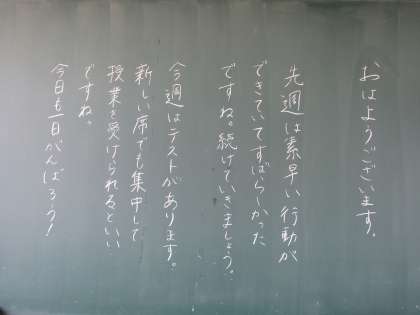 おはようございます。
先週は素早い行動が
できていてすばらしかった
ですね。続けていきましょう。
今週はテストがあります。
新しい席でも集中して
授業を受けられるといい
ですね。
今日も一日がんばろう!